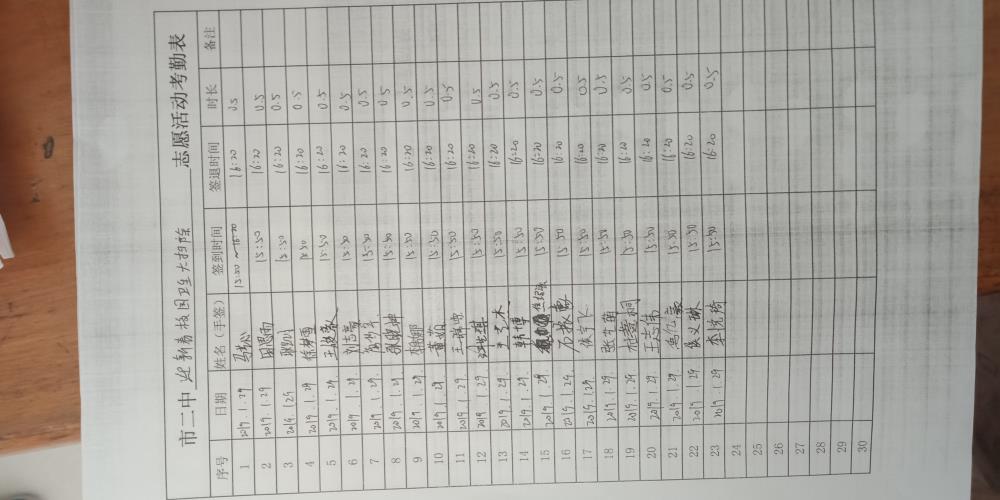 市二中 迎新春校园卫生大扫除 志愿活动考勤表
序号 日期 姓名（手签） 签到时间 签退时间 时长 备注
1 2019.1.29 15:50~16:20 16:20 0.5
2 2019.1.29 田思雨 15:50 16:20 0.5
3 2019.1.29 15:50 16:20 0.5
4 2019.1.29 15:50 16:20 0.5
5 2019.1.29 15:50 16:20 0.5
6 2019.1.29 刘志豪 15:50 16:20 0.5
7 2019.1.29 15:50 16:20 0.5
8 2019.1.29 张晓坤 15:50 16:20 0.5
9 2019.1.29 15:50 16:20 0.5
10 2019.1.29 黄娟 15:50 16:20 0.5
11 2019.1.29 15:50 16:20 0.5
12 2019.1.29 15:50 16:20 0.5
13 2019.1.29 15:50 16:20 0.5
14 2019.1.29 韩博 15:50 16:20 0.5
15 2019.1.29 15:50 16:20 0.5
16 2019.1.29 15:50 16:20 0.5
17 2019.1.29 侯宇飞 15:50 16:20 0.5
18 2019.1.29 15:50 16:20 0.5
19 2019.1.29 15:50 16:20 0.5
20 2019.1.29 王志伟 15:50 16:20 0.5
21 2019.1.29 15:50 16:20 0.5
22 2019.1.29 侯义琳 15:50 16:20 0.5
23 2019.1.29 15:50 16:20 0.5
24
25
26
27
28
29
30